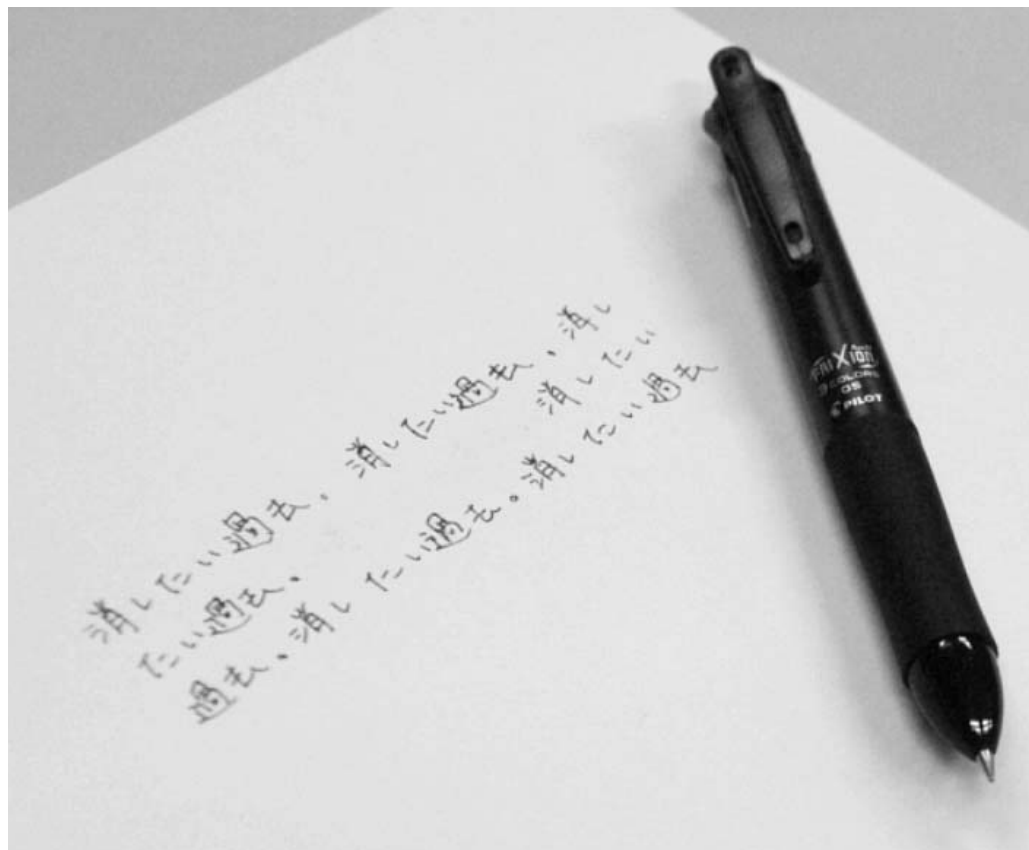 消したい過去。消したい過去。消し
たい過去。消したい
過去。消したい過去。消したい過去
FRIXion
3 COLORS
05
PILOT